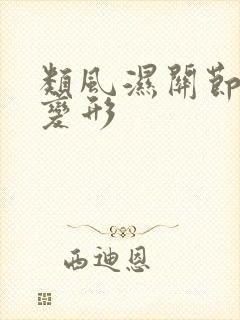 類風濕關節
變形
西迪恩